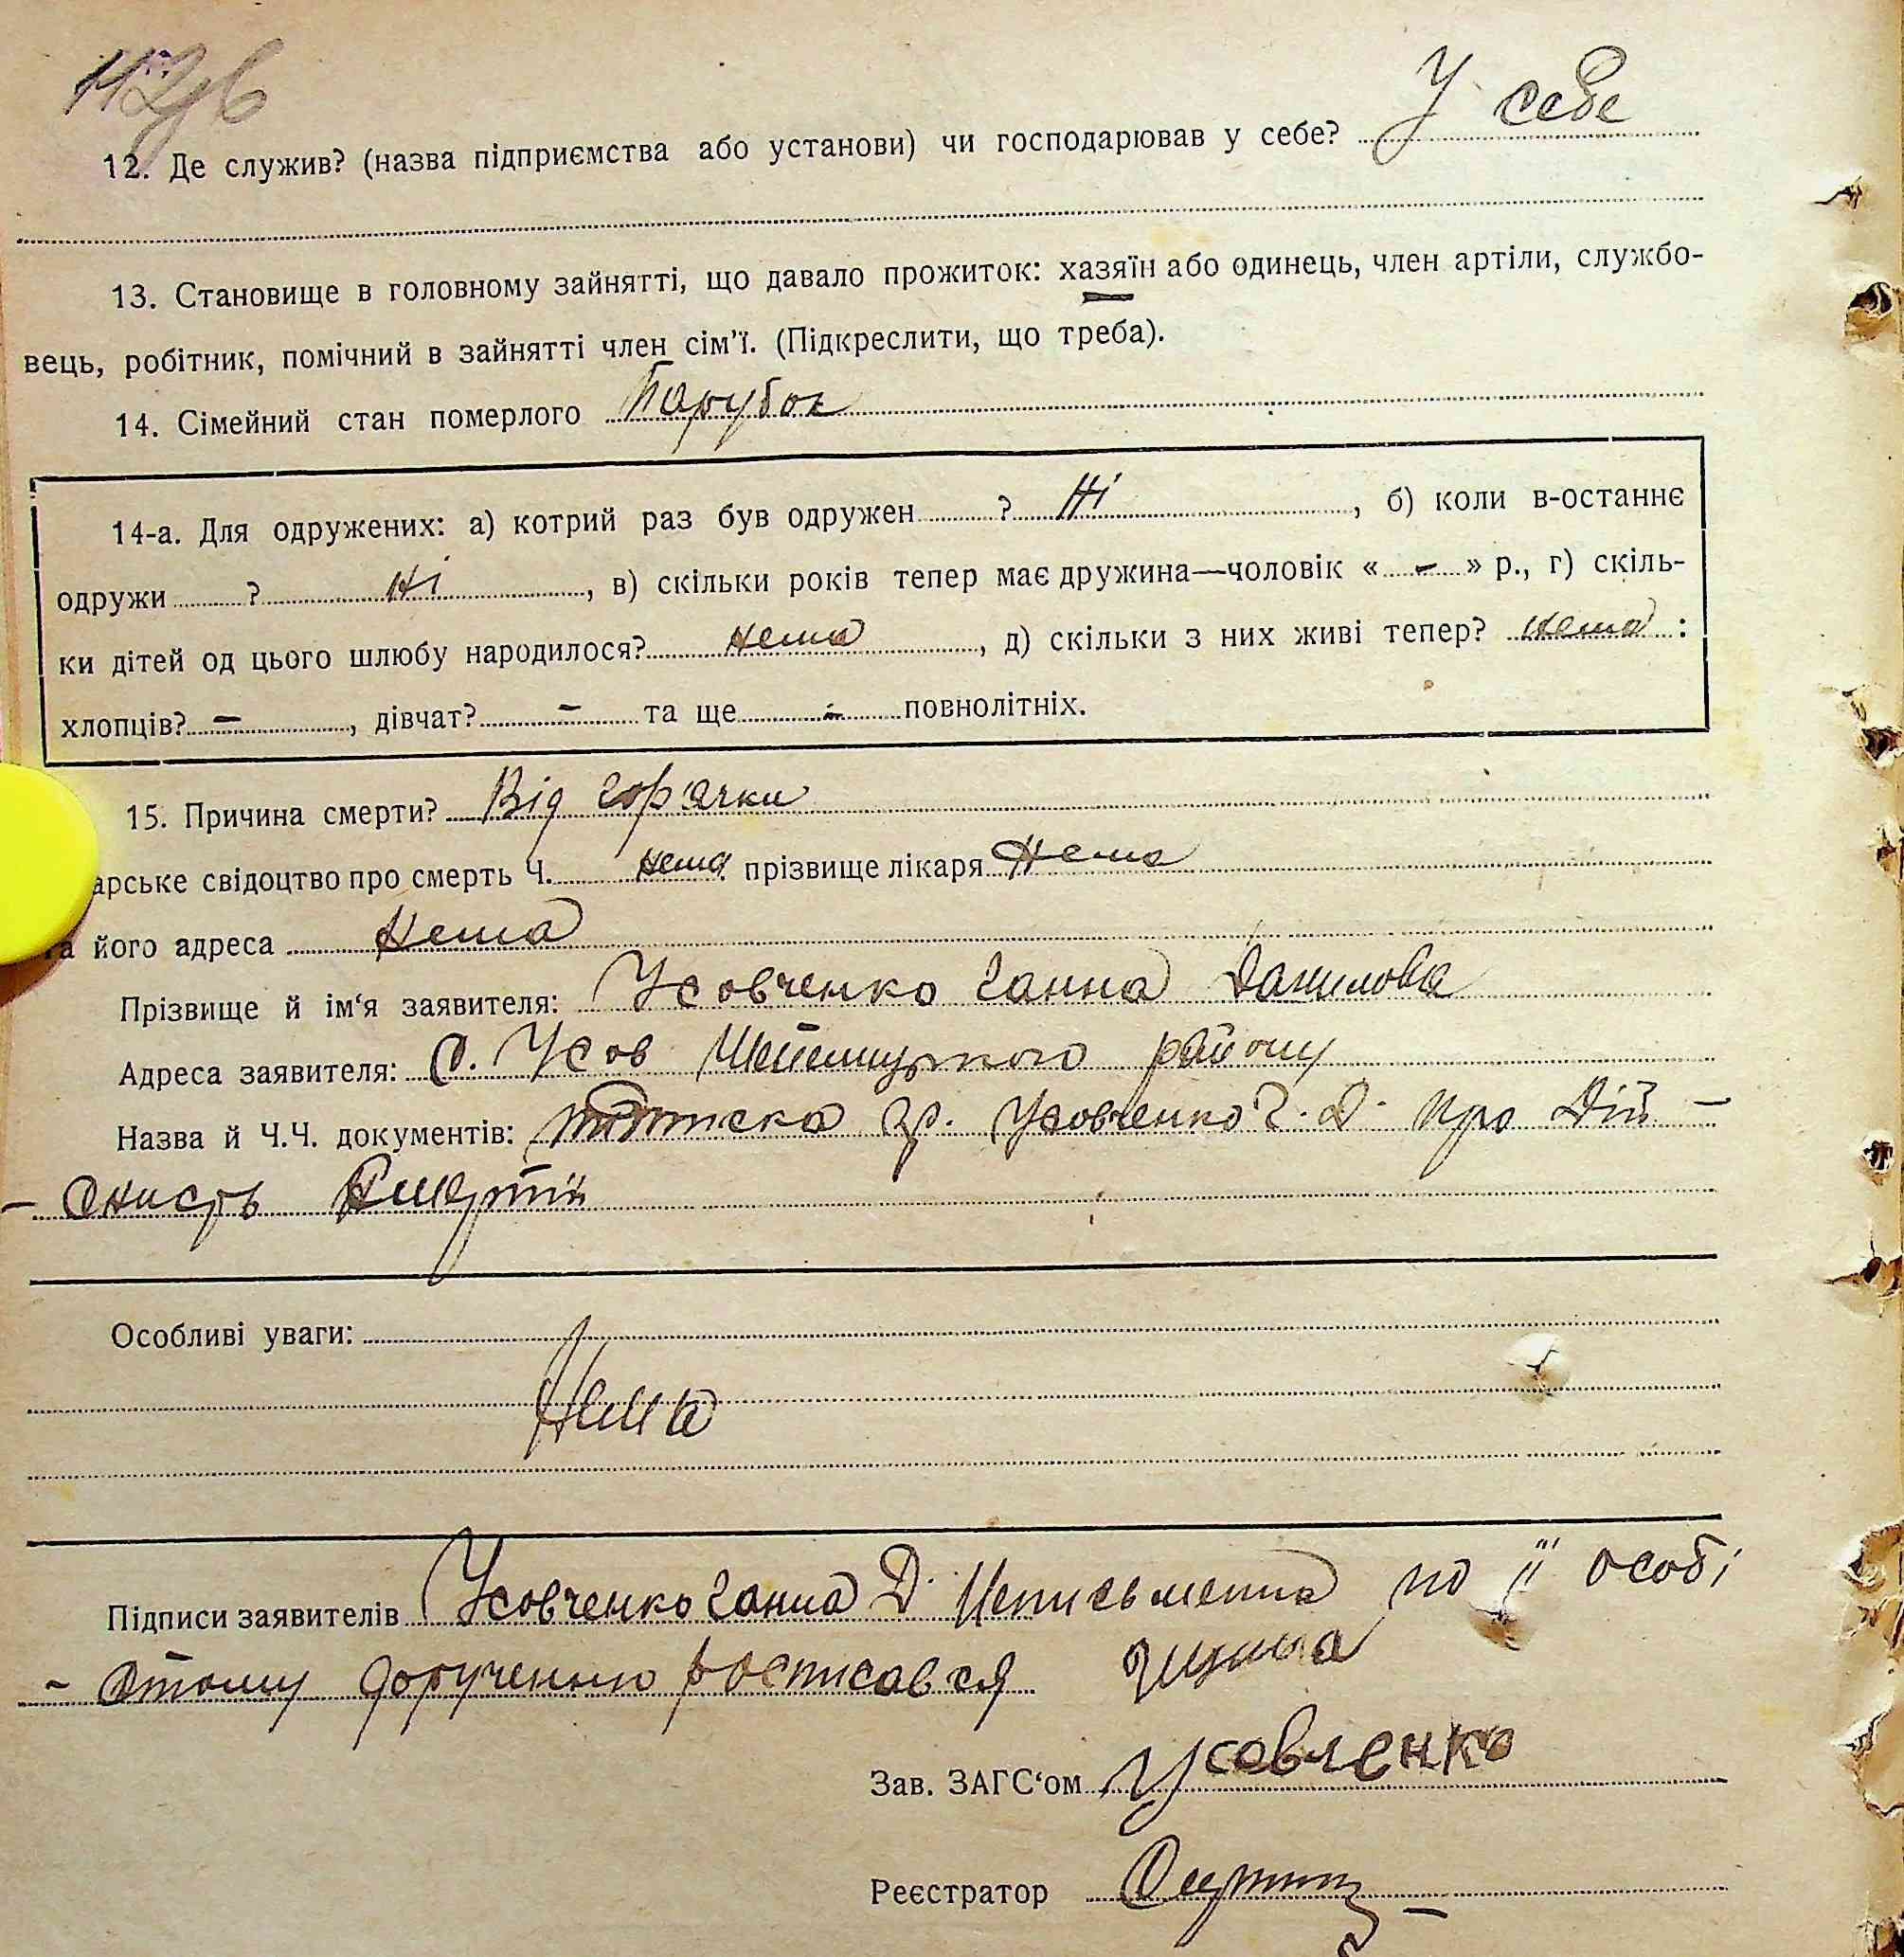 12. Де служив? (назва підприємства або установи) чи господарював у себе? У себе
13. Становище в головному зайнятті, що давало прожиток: хазяїн або одинець, член артіли, службо-
вець, робітник, помічний в зайнятті член сім'ї. (Підкреслити, що треба).
14. Сімейний стан померлого Парубок
14-а. Для одружених: а) котрий раз був одружен ? Ні , б) коли в-останнє
одружи ? Ні , в) скільки років тепер має дружина—чоловік « – » р., г) скіль-
ки дітей од цього шлюбу народилося? нема , д) скільки з них живі тепер? нема :
хлопців? – , дівчат? – та ще – повнолітніх.
15. Причина смерти? Від горячки
арське свідоцтво про смерть Ч. нема прізвище лікаря Нема
та його адреса Нема
Прізвище й ім'я заявителя: Усовченко Ганна Данилова
Адреса заявителя: с. Усов району
Назва й Ч.Ч. документів: гр. Усовченко Г. Д. про Дій –
– сність
Особливі уваги:
Нема
Підписи заявителів Усовченко Ганна Д. Неписьменна по її особі
– стому дорученню росписався
Зав. ЗАГС'ом Усовченко
Реєстратор